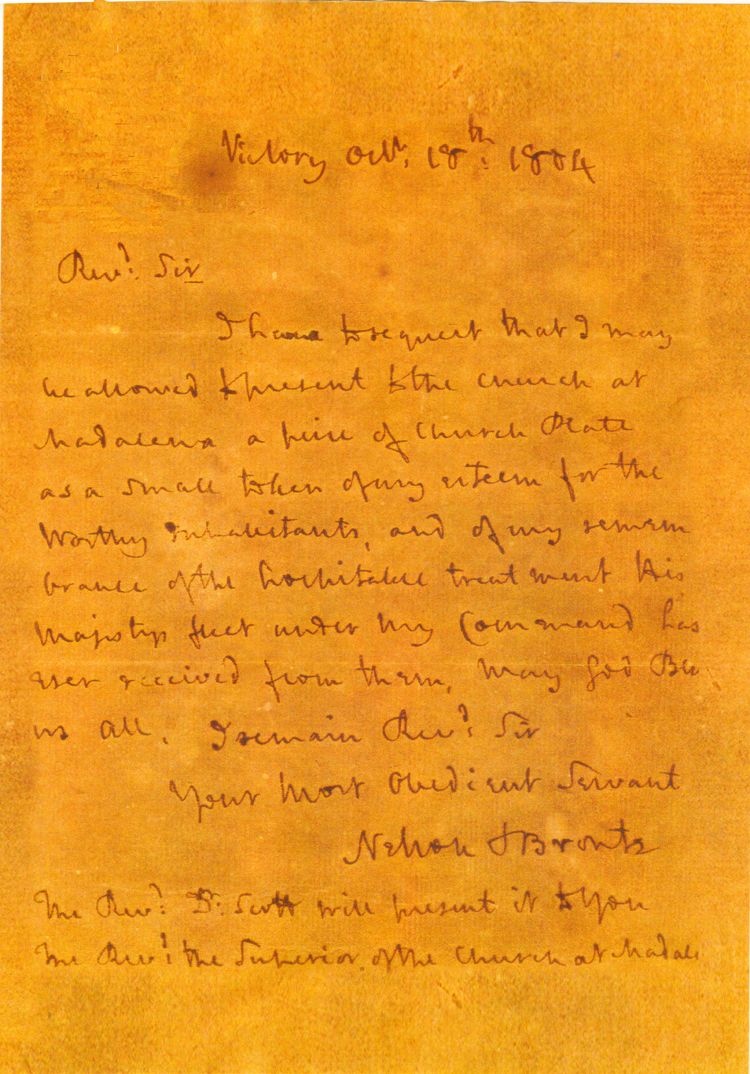 Victory Octr. 18th: 1804
Revd: Sir
I have to request that I may
be allowed to present to the church at
Madalena a piece of Church Plate
as a small token of my esteem for the
worthy Inhabitants, and of my remem
brance of the hospitable treatment His
Majestys fleet under my Command has
ever received from them, may God Bless
us all, I remain Revd: Sir
Your Most Obedient Servant
Nelson & Bronte
The Revd: Dr: Scott will present it to You
The Revd: the Superior of the Church at Madale